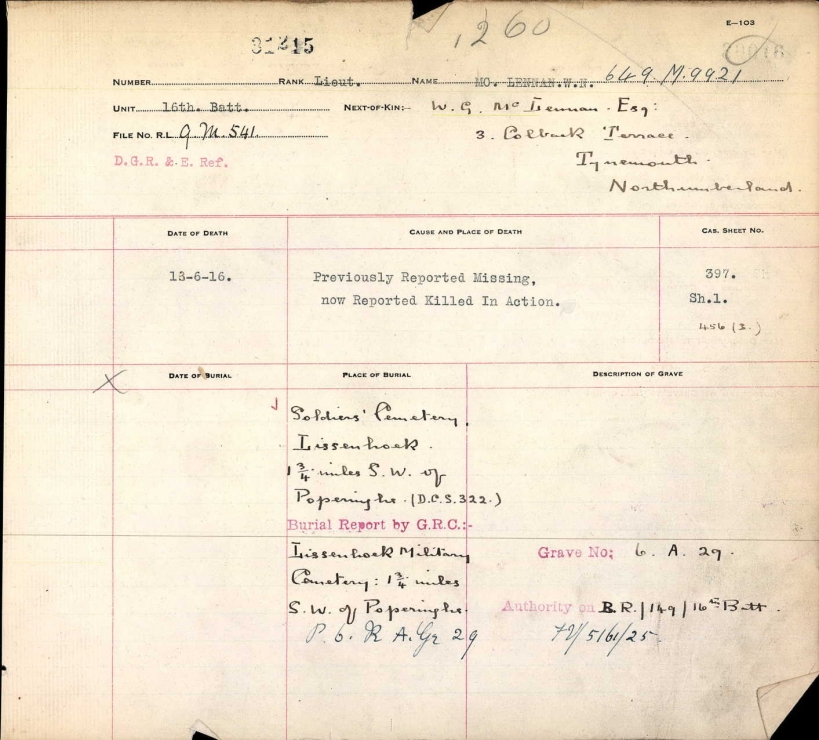 E-103
31215
1260
NUMBER RANK Lieut. NAME MC. LENNAN.W.N. 649.M.9921
UNIT 16th. Batt. NEXT-OF-KIN:- W. G. McLennan. Esq:
FILE NO. R.L. 9 M. 541. 3. Colback Terrace.
D.G.R. & E. Ref. Tynemouth.
Northumberland.
DATE OF DEATH CAUSE AND PLACE OF DEATH CAS. SHEET NO.
13-6-16. Previously Reported Missing, 397.
now Reported Killed In Action. Sh.1.
456 (3.)
DATE OF BURIAL PLACE OF BURIAL DESCRIPTION OF GRAVE
X
Soldiers' Cemetery,
Lissenhoek.
1 3/4 miles S. W. of
Poperinghe. (D.C.S.322.)
Burial Report by G.R.C.:-
Lissenhoek Military Grave No; 6. A. 29.
Cemetery: 1 3/4 miles
S. W. of Poperinghe. Authority on B.R./149/16th Batt.
P. 6. R A. Gr 29